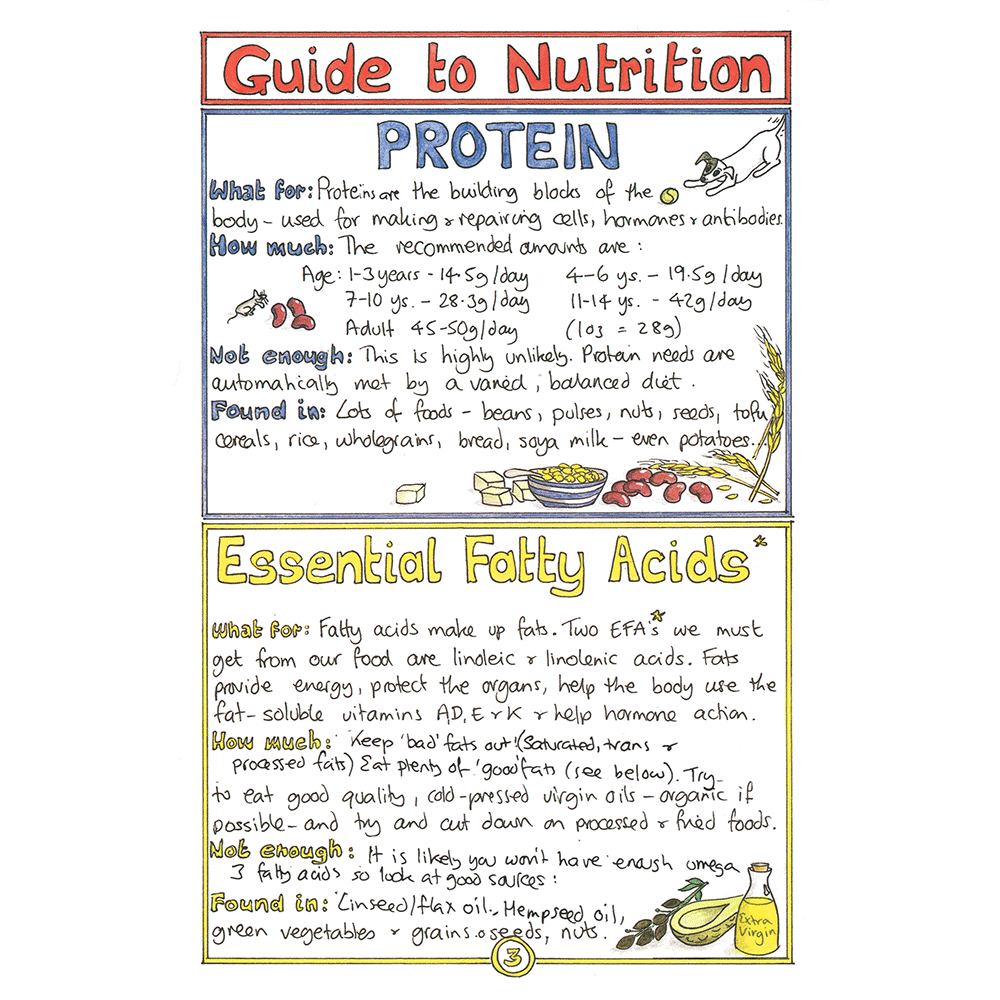 Guide to Nutrition
PROTEIN
What for: Proteins are the building blocks of the
body - used for making & repairing cells, hormones & antibodies.
How much: The recommended amounts are :
Age: 1-3 years - 14.5g/day 4-6 ys. - 19.5g/day
7-10 ys. - 28.3g/day 11-14 ys. - 42g/day
Adult 45-50g/day (1oz = 28g)
Not enough: This is highly unlikely. Protein needs are
automatically met by a varied, balanced diet.
Found in: Lots of foods - beans, pulses, nuts, seeds, tofu
cereals, rice, wholegrains, bread, soya milk - even potatoes.
Essential Fatty Acids*
What for: Fatty acids make up fats. Two EFA's* we must
get from our food are linoleic & linolenic acids. Fats
provide energy, protect the organs, help the body use the
fat-soluble vitamins A,D,E & K & help hormone action.
How much: Keep 'bad' fats out! (Saturated, trans &
processed fats) Eat plenty of 'good' fats (see below). Try
to eat good quality, cold-pressed virgin oils - organic if
possible - and try and cut down on processed & fried foods.
Not enough: It is likely you won't have enough omega
3 fatty acids so look at good sources:
Found in: Linseed/flax oil, Hempseed oil,
green vegetables & grains. seeds, nuts.
Extra
Virgin
3